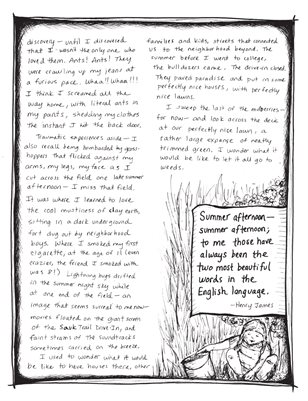 discovery — until I discovered
that I wasn't the only one who
loved them. Ants! Ants! They
were crawling up my jeans at
a furious pace. Whaa!! Whaa!!!
I think I screamed all the
way home, with literal ants in
my pants, shedding my clothes
the instant I hit the back door.
Traumatic experiences aside — I
also recall being bombarded by grass-
hoppers that flicked against my
arms, my legs, my face as I
cut across the field one late summer
afternoon — I miss that field.
It was where I learned to love
the cool mustiness of clay earth,
sitting in a dark underground
fort dug out by neighborhood
boys. Where I smoked my first
cigarette, at the age of 11 (even
crazier, the friend I smoked with
was 8!) Lightning bugs drifted
in the summer night sky while
at one end of the field — an
image that seems surreal to me now —
movies floated on the giant screen
of the Sauk Trail Drive In, and
faint strains of the soundtracks
sometimes carried on the breeze.
I used to wonder what it would
be like to have houses there, other
families and kids, streets that connected
us to the neighborhood beyond. The
summer before I went to college,
the bulldozers came. The drive-in closed.
They paved paradise and put in some
perfectly nice houses, with perfectly
nice lawns.
I sweep the last of the mulberries —
for now — and look across the deck
at our perfectly nice lawn, a
rather large expanse of neatly
trimmed green. I wonder what it
would be like to let it all go to
weeds.
Summer afternoon —
summer afternoon;
to me those have
always been the
two most beautiful
words in the
English language.
— Henry James